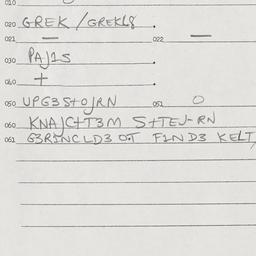 010
020 GREK / GREKL8 .
021 — 022 —
030 PAJ1S .
040 + .
050 UPG3S+OJRN 051 0
060 KNAJC+T3M S+TEJ-RN
061 G3RINCLD3 OT F1ND3 KELT,